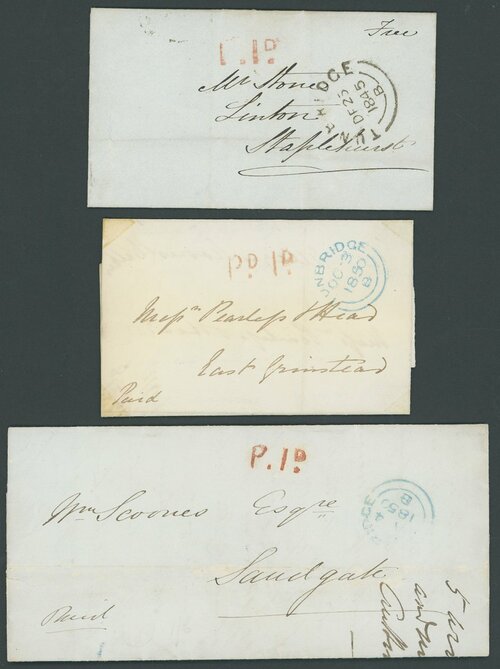 P.1D.
Free
TUNBRIDGE
DE 23
1845
B
Mr Stone
Linton
Staplehurst
Pd 1D.
UNBRIDGE
OC 3
1850
B
Messrs Pearless & Head
East Grinstead
Paid
P.1D.
Wm Scoones Esqre
DGE
185
B
Sandgate
Paid